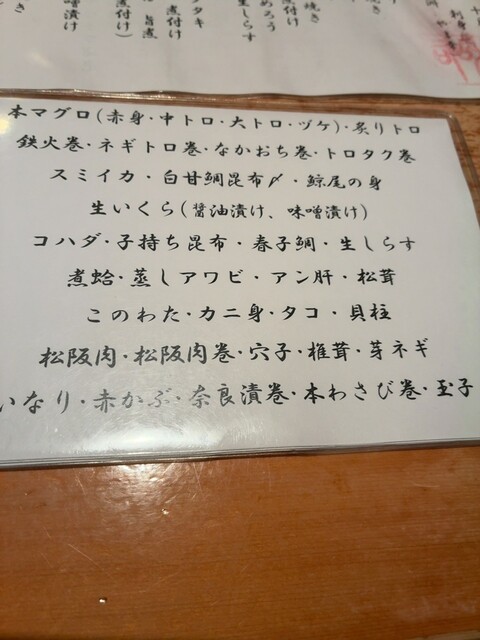 本マグロ(赤身・中トロ・大トロ・ヅケ)・炙りトロ
鉄火巻・ネギトロ巻・なかおち巻・トロタク巻
スミイカ・白甘鯛昆布〆・鯨尾の身
生いくら(醤油漬け、味噌漬け)
コハダ・子持ち昆布・春子鯛・生しらす
煮蛤・蒸しアワビ・アン肝・松茸
このわた・カニ身・タコ・貝柱
松阪肉・松阪肉巻・穴子・椎茸・芽ネギ
いなり・赤かぶ・奈良漬巻・本わさび巻・玉子
焼き
煮付け
めろう
生しらす
タタキ
煮付け
旨煮
煮付け)
噌漬け